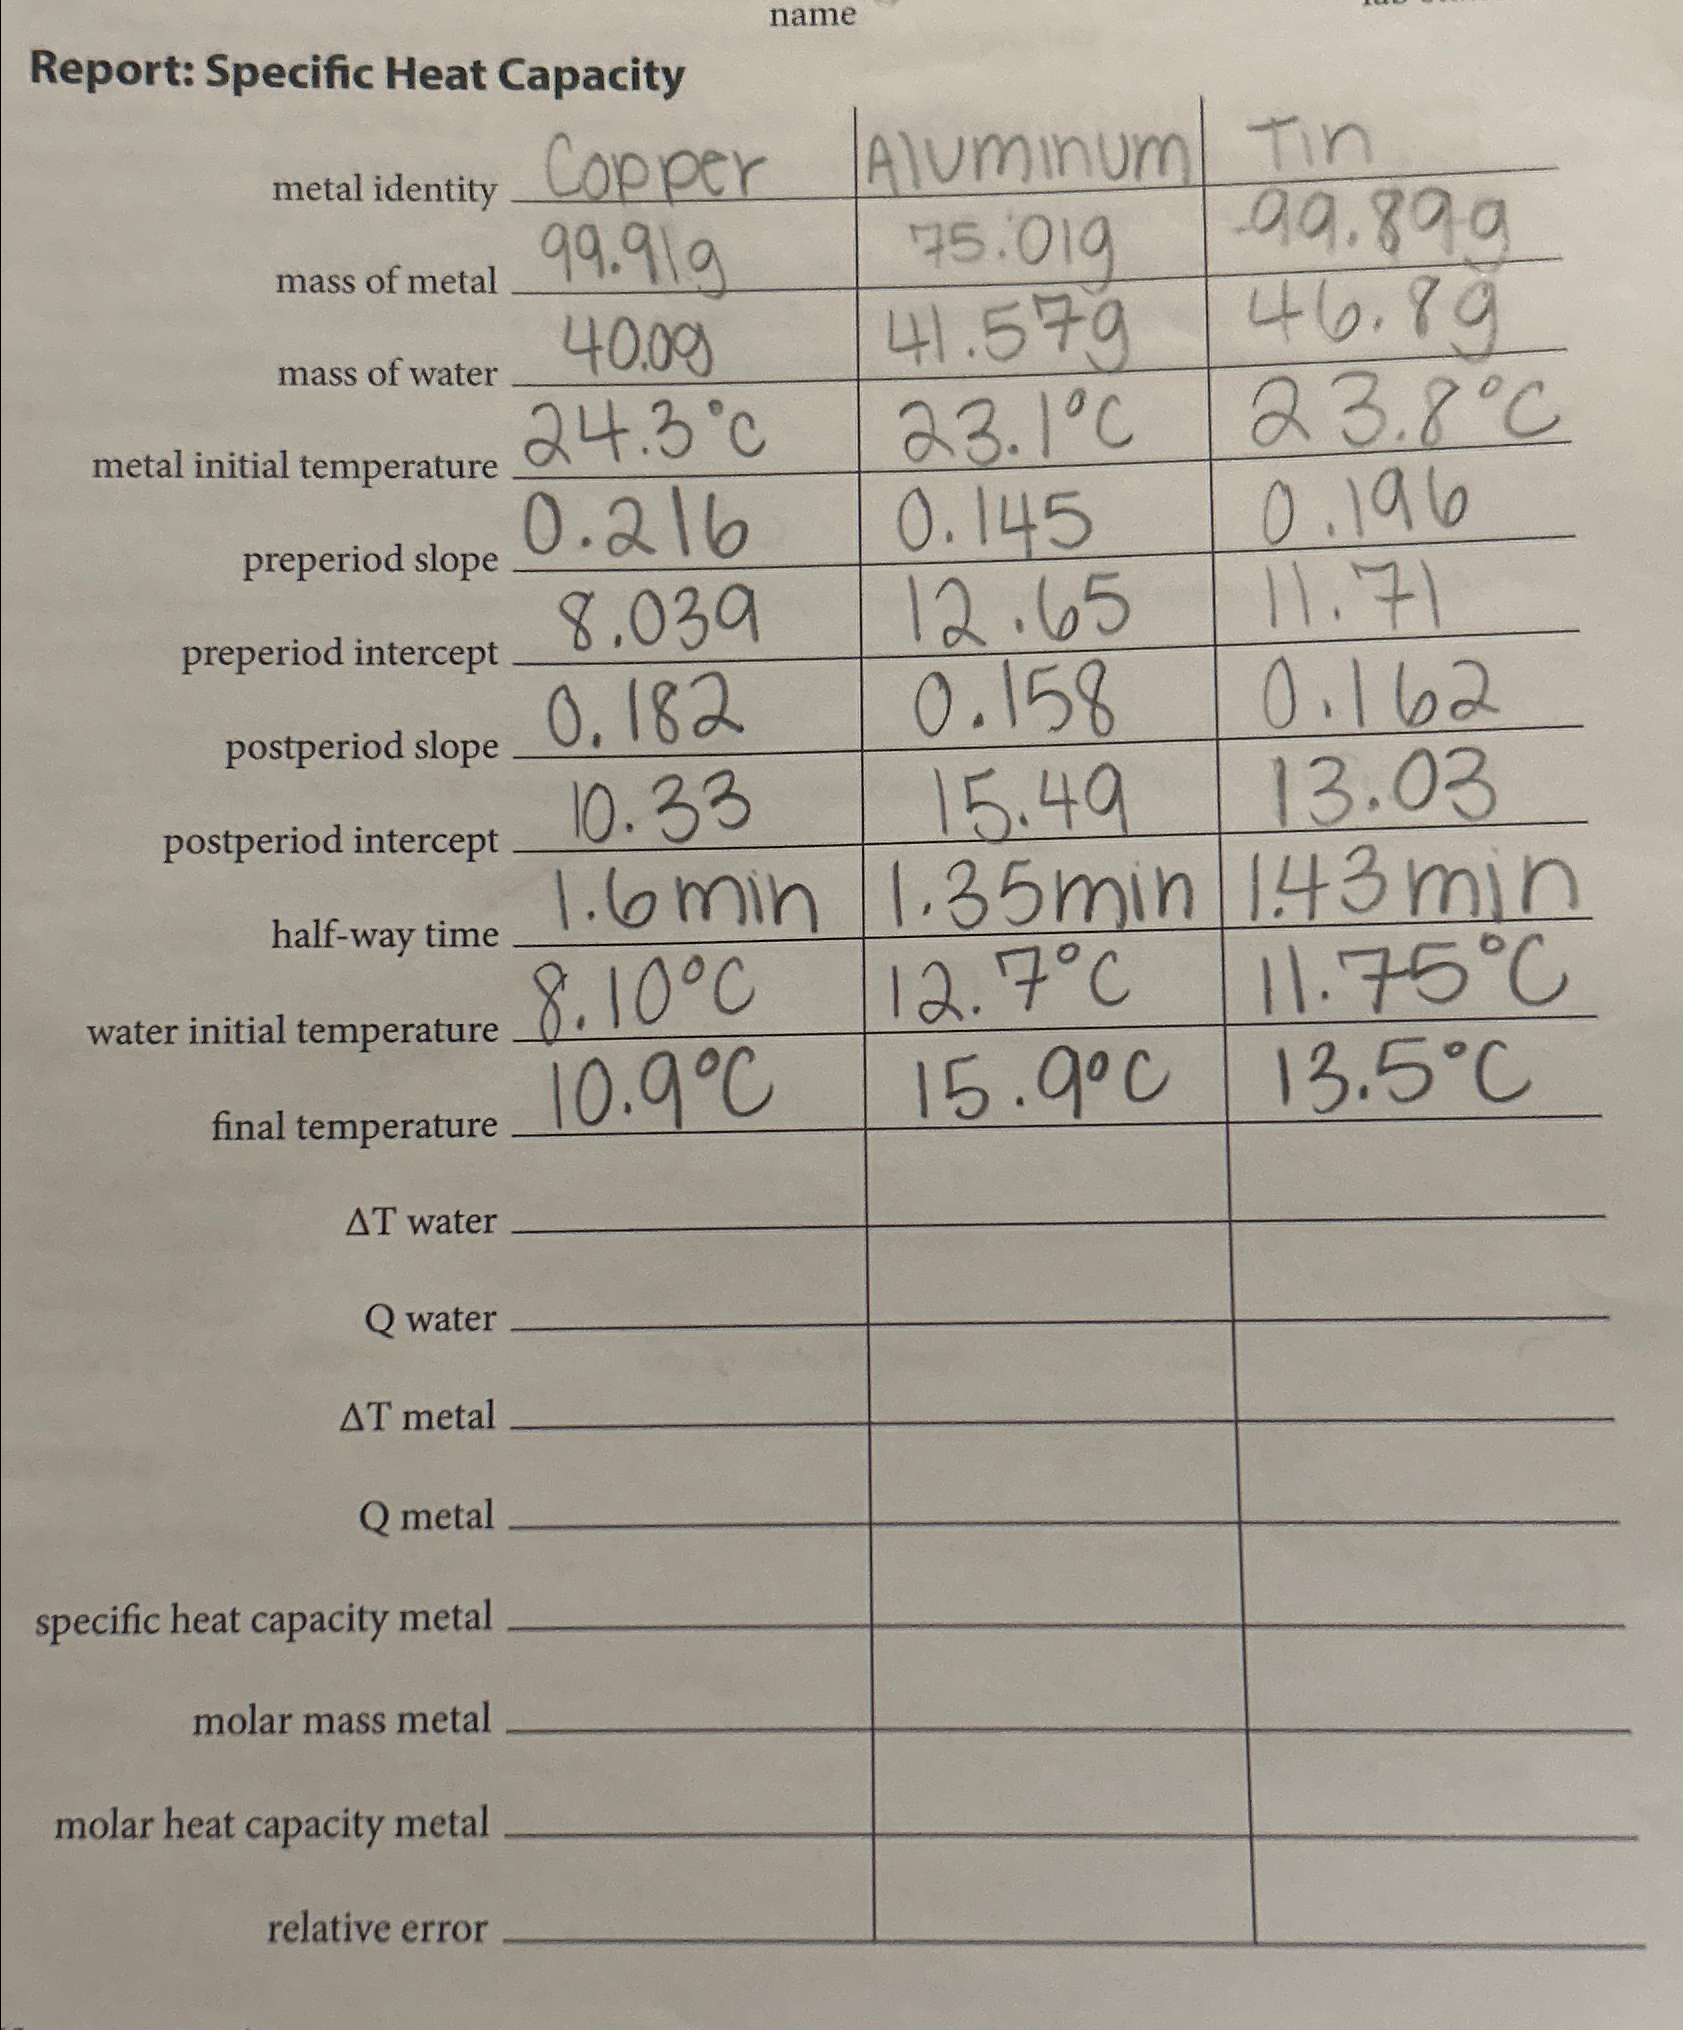 name
Report: Specific Heat Capacity
metal identity Copper Aluminum Tin
mass of metal 99.91g 75.01g 99.89g
mass of water 40.0g 41.57g 46.8g
metal initial temperature 24.3°C 23.1°C 23.8°C
preperiod slope 0.216 0.145 0.196
preperiod intercept 8.039 12.65 11.71
postperiod slope 0.182 0.158 0.162
postperiod intercept 10.33 15.49 13.03
half-way time 1.6min 1.35min 1.43min
water initial temperature 8.10°C 12.7°C 11.75°C
final temperature 10.9°C 15.9°C 13.5°C
ΔT water
Q water
ΔT metal
Q metal
specific heat capacity metal
molar mass metal
molar heat capacity metal
relative error